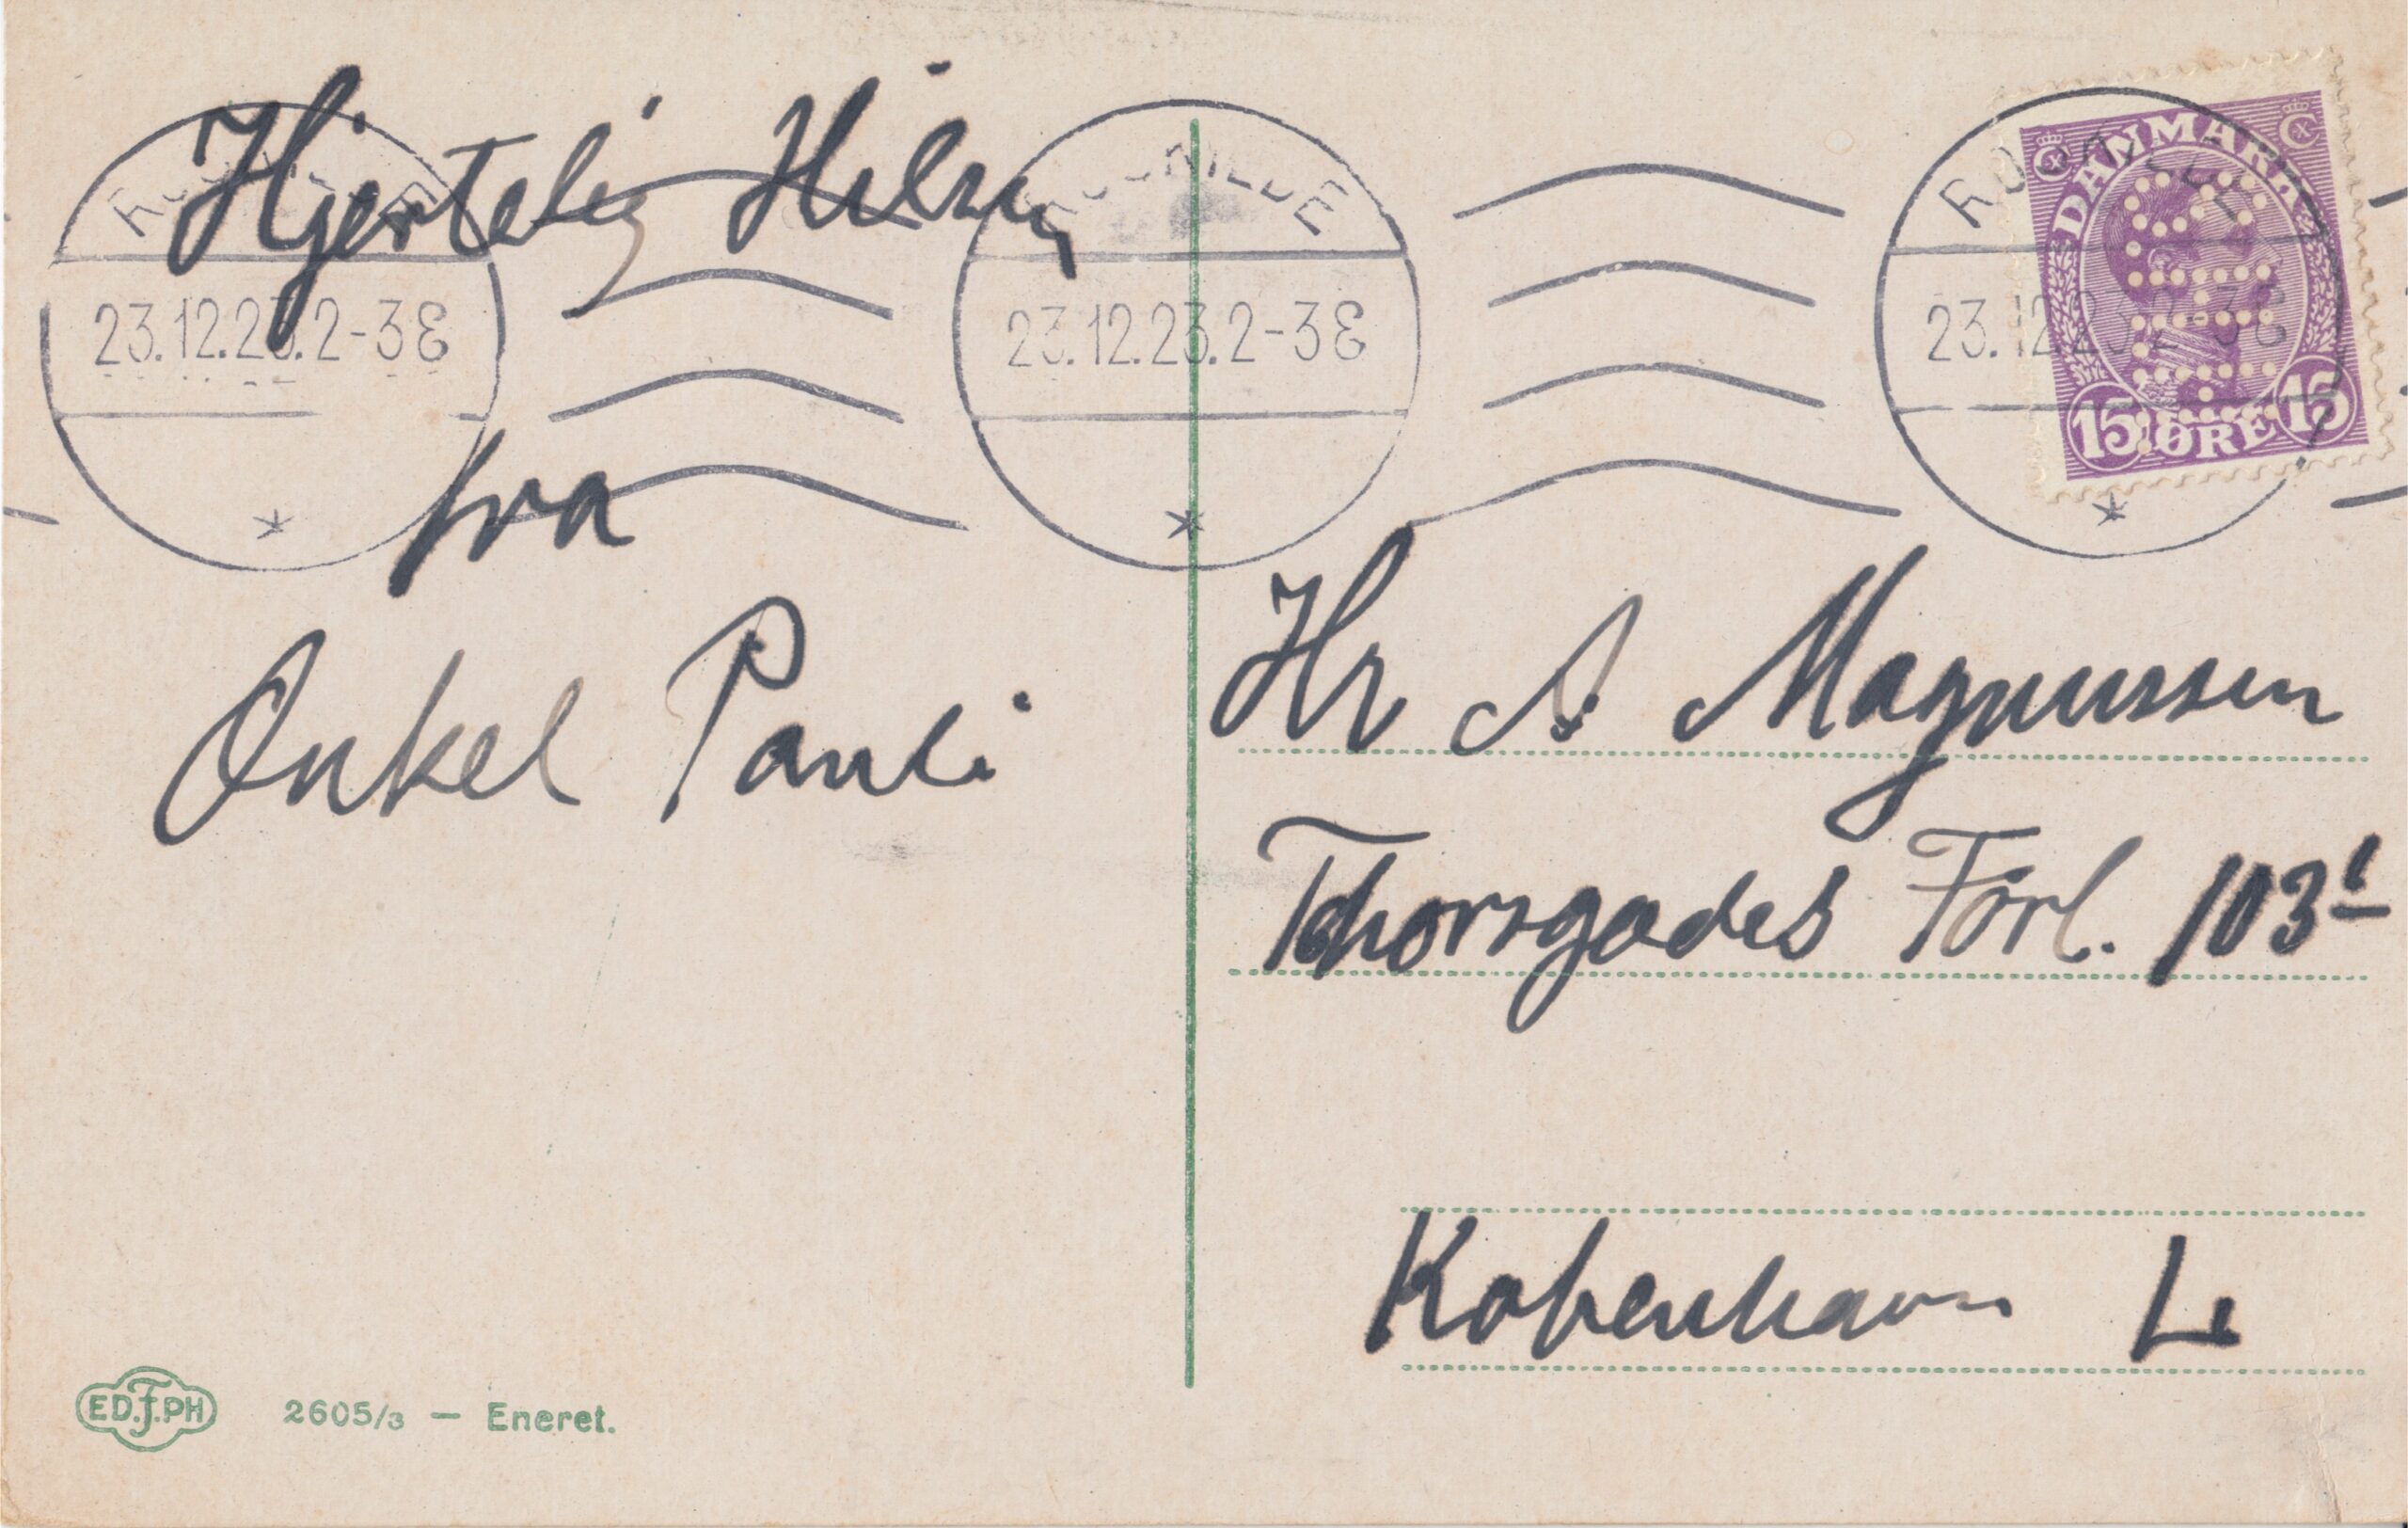 Hjertelig Hilsen
fra
Onkel Pauli
ROSKILDE
23.12.23.2-3E
ROSKILDE
23.12.23.2-3E
ROSKILDE
23.12.23.2-3E
DANMARK
15 ØRE 15
Hr A Magnussen
Thorsgades Forl. 103¹
København L
ED.F.PH
2605/3 — Eneret.